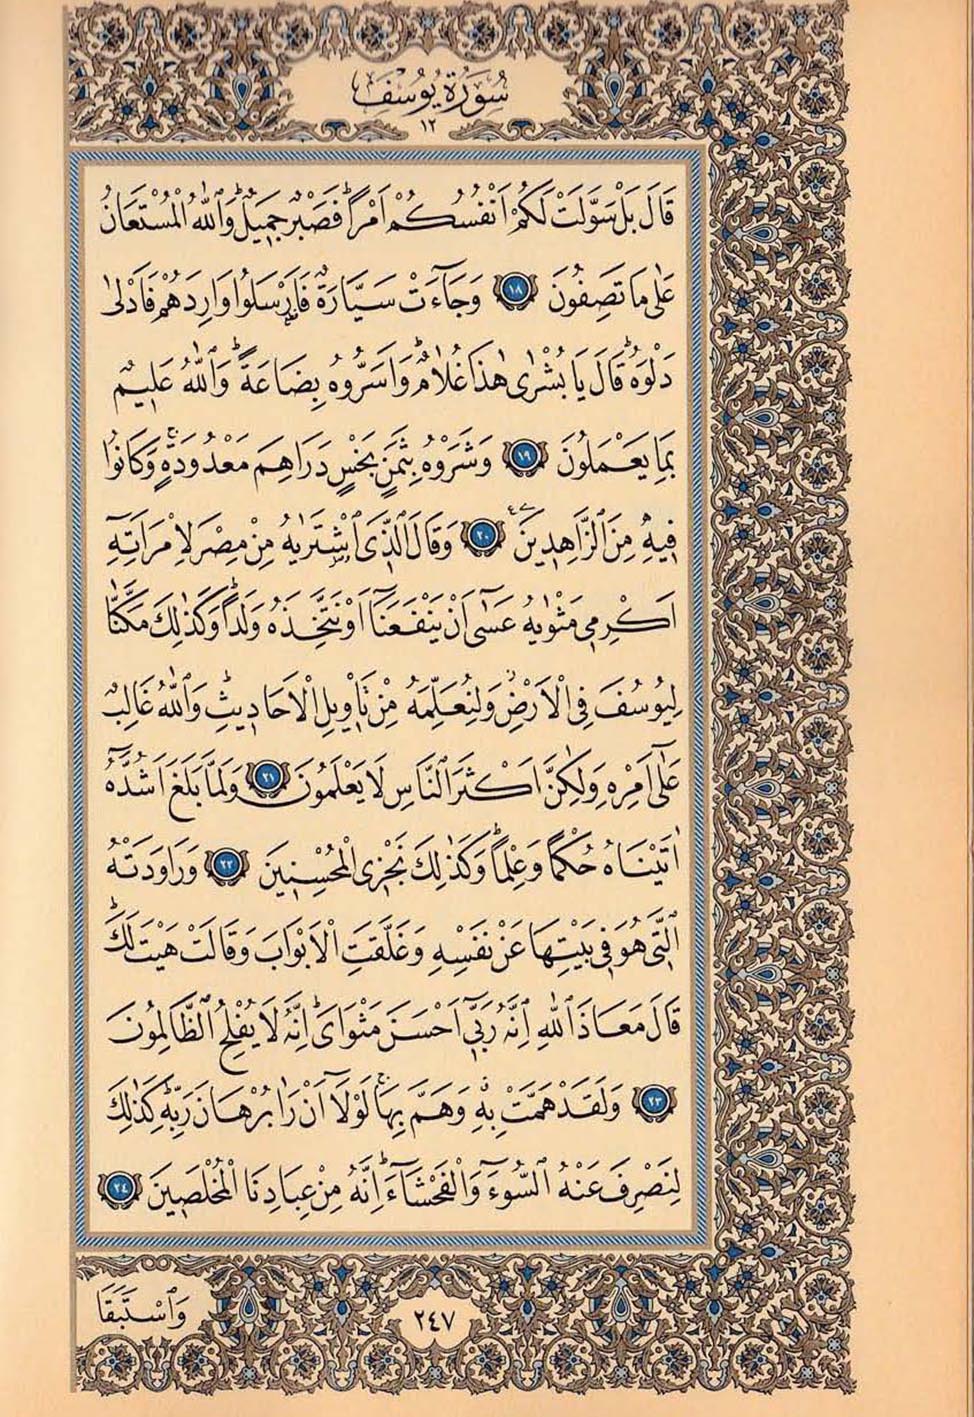 سُورَةُ يُوسُفَ
١٢
قَالَ بَلْ سَوَّلَتْ لَكُمْ اَنْفُسُكُمْ اَمْراًۜ فَصَبْرٌ جَمٖيلٌۜ وَاللّٰهُ الْمُسْتَعَانُ
عَلٰى مَا تَصِفُونَ ١٨ وَجَٓاءَتْ سَيَّارَةٌ فَاَرْسَلُوا وَارِدَهُمْ فَاَدْلٰى
دَلْوَهُۜ قَالَ يَا بُشْرٰى هٰذَا غُلَامٌۜ وَاَسَرُّوهُ بِضَاعَةًۜ وَاللّٰهُ عَلٖيمٌ
بِمَا يَعْمَلُونَ ١٩ وَشَرَوْهُ بِثَمَنٍ بَخْسٍ دَرَاهِمَ مَعْدُودَةٍۚ وَكَانُوا
فٖيهِ مِنَ الزَّاهِدٖينَ ٢٠ وَقَالَ الَّذِى اشْتَرٰيهُ مِنْ مِصْرَ لِامْرَاَتِهٖٓ
اَكْرِمٖى مَثْوٰيهُ عَسٰٓى اَنْ يَنْفَعَنَٓا اَوْ نَتَّخِذَهُ وَلَداًۜ وَكَذٰلِكَ مَكَّنَّا
لِيُوسُفَ فِى الْاَرْضِۘ وَلِنُعَلِّمَهُ مِنْ تَأْوٖيلِ الْاَحَادٖيثِۜ وَاللّٰهُ غَالِبٌ
عَلٰٓى اَمْرِهٖ وَلٰكِنَّ اَكْثَرَ النَّاسِ لَا يَعْلَمُونَ ٢١ وَلَمَّا بَلَغَ اَشُدَّهُٓ
اٰتَيْنَاهُ حُكْماً وَعِلْماًۜ وَكَذٰلِكَ نَجْزِى الْمُحْسِنٖينَ ٢٢ وَرَاوَدَتْهُ
الَّتٖى هُوَ فٖى بَيْتِهَا عَنْ نَفْسِهٖ وَغَلَّقَتِ الْاَبْوَابَ وَقَالَتْ هَيْتَ لَكَۜ
قَالَ مَعَاذَ اللّٰهِ اِنَّهُ رَبّٖٓى اَحْسَنَ مَثْوَاىَۜ اِنَّهُ لَا يُفْلِحُ الظَّالِمُونَ
٢٣ وَلَقَدْ هَمَّتْ بِهٖ وَهَمَّ بِهَاۚ لَوْلَٓا اَنْ رَاٰ بُرْهَانَ رَبِّهٖۜ كَذٰلِكَ
لِنَصْرِفَ عَنْهُ السُّٓوءَ وَالْفَحْشَٓاءَۜ اِنَّهُ مِنْ عِبَادِنَا الْمُخْلَصٖينَ ٢٤
وَاسْتَبَقَا
٢٤٧